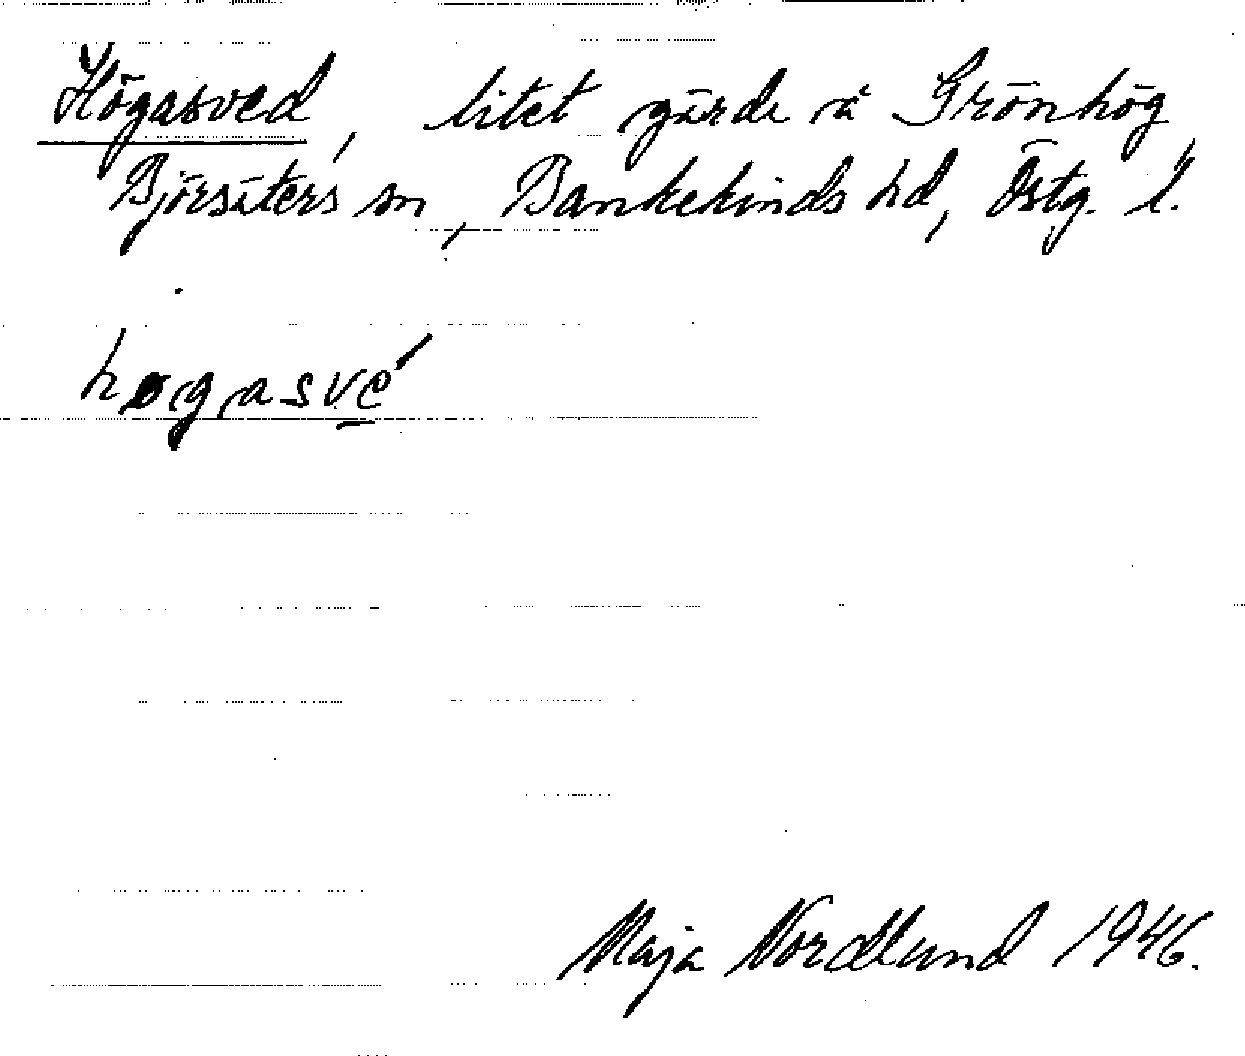 Högasved, litet gärde å Grönhög,
Björsäters sn, Bankekinds hd, Östg. l.
høgasvé
Maja Nordlund 1946.